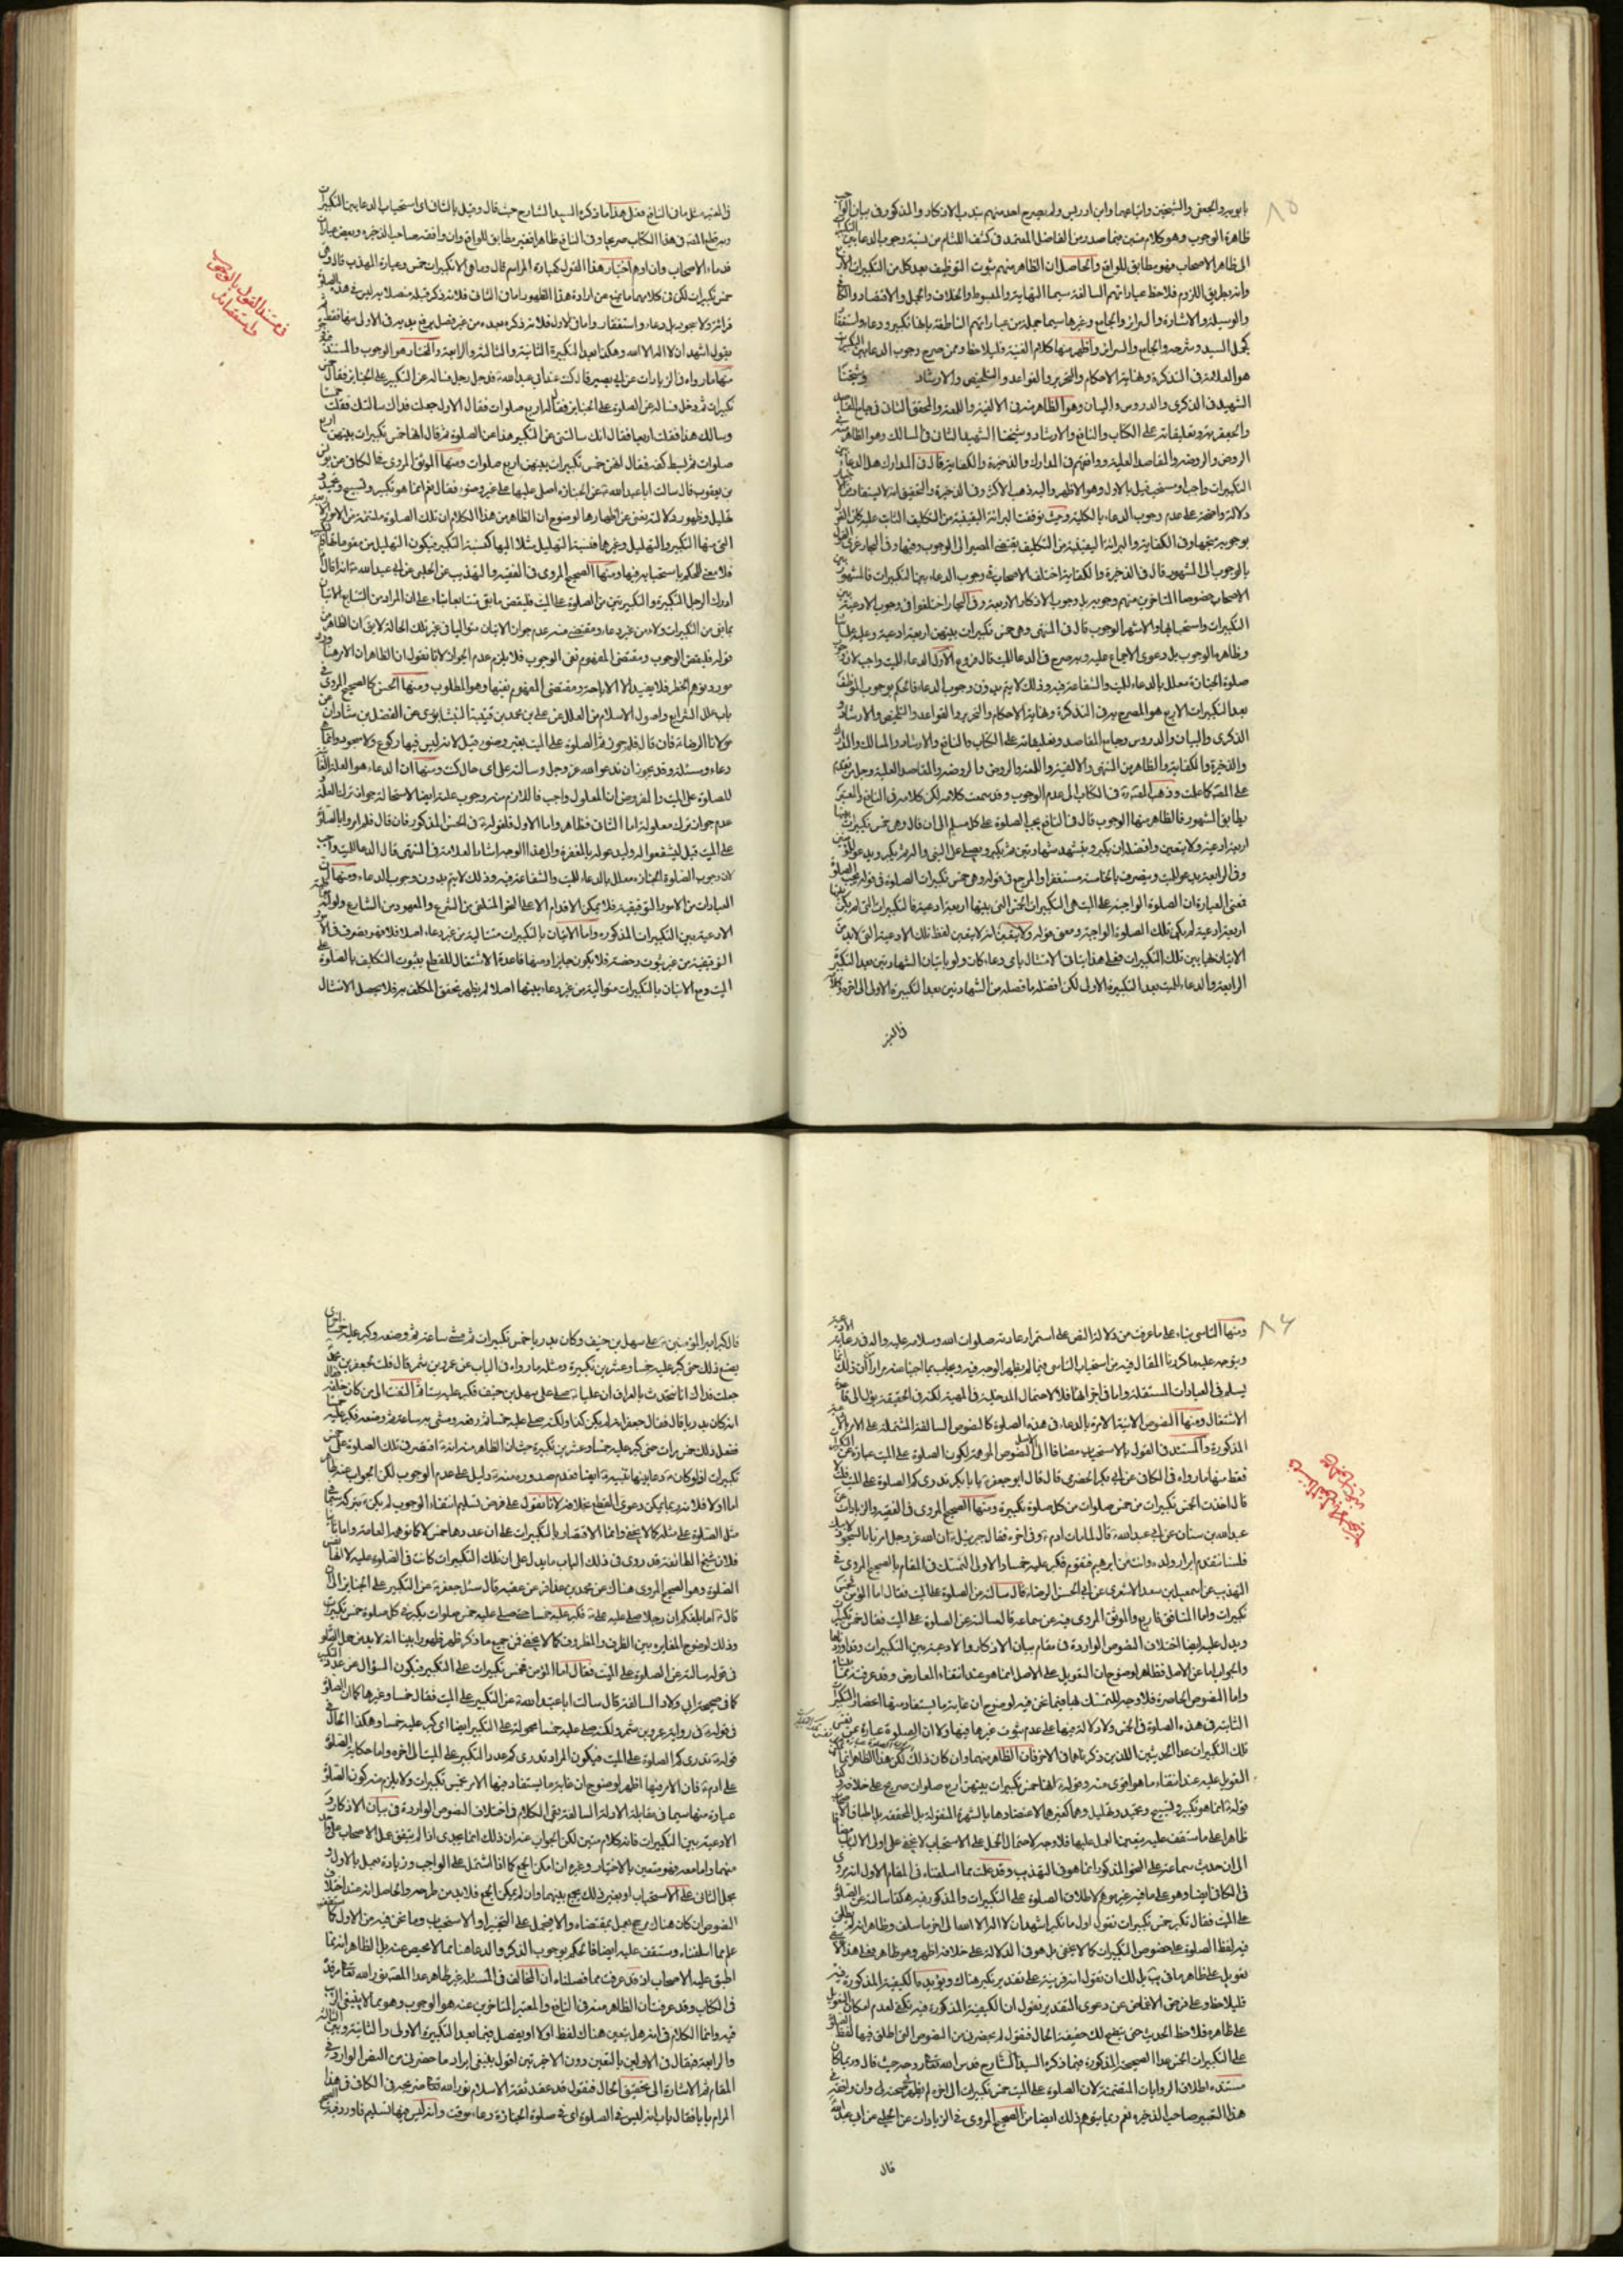 بابويه والجعفي والشيخين واتباعهما وابن ادريس ولم يصرح احد منهم بندب الاذكار والمذكور في بيان الواجب
ظاهرة الوجوب وهو كلام متين فما صدر من الفاضل المعتمد في كشف اللثام من نسبة وجوب الدعا بين التكبيرات
الى ظاهر الاصحاب فهو مطابق للواقع والحاصل ان الظاهر منهم ثبوت التوظيف بعد كل من التكبيرات الاربع
وانه بطريق اللزوم فلاحظ عباراتهم السالفة سيما النهاية والمبسوط والخلاف والجمل والاقتصاد والكافي
والوسيلة والاشارة والسرائر والجامع وغيرها سيما جملة من عباراتهم الناطقة بانها تكبير ودعاء واستغفار
كجمل السيد وشرحه والجامع والسرائر واظهر منها كلام الغنية فليلاحظ وممن صرح بوجوب الدعا بين التكبيرات
هو العلامة في التذكرة ونهاية الاحكام والتحرير والقواعد والتلخيص والارشاد وشيخنا
الشهيد في الذكرى والدروس والبيان وهو الظاهر منه في الالفية واللمعة والمحقق الثاني في جامع المقاصد
والجعفرية وتعليقاته على الكتاب والنافع والارشاد وشيخنا الشهيد الثاني في المسالك وهو الظاهر منه في
الروض والروضة والمقاصد العلية ووافقهم في المدارك والذخيرة والكفاية قال في المدارك هل الدعاء بين
التكبيرات واجب او مستحب قيل بالاول وهو الاظهر واليه ذهب الاكثر وفي الذخيرة والتحقيق انه لا يستفاد من الاخبار
دلالة واضحة على عدم وجوب الدعاء بالكلية وحيث توقفت البرائة اليقينية من التكليف الثابت عليه كان القول
بوجوبه متجها وفي الكفاية والبرائة اليقينية من التكليف يقتضي المصير الى الوجوب وفيها وفي البحار عزى القول
بالوجوب الى المشهور قال في الذخيرة والكفاية اختلف الاصحاب في وجوب الدعاء بين التكبيرات فالمشهور بين
الاصحاب خصوصا المتاخرين منهم وجوبه بل وجوب الاذكار الاربعة وفي البحار اختلفوا في وجوب الادعية بين
التكبيرات واستحبابها والاشهر الوجوب قال في المنتهى وهي خمس تكبيرات بينهن اربعة ادعية وعليه علمائنا
وظاهره الوجوب بل دعوى الاجماع عليه وبه صرح في الدعا للميت قال فروع الاول الدعاء للميت واجب لان وجوب
صلوة الجنازة معلل بالدعاء للميت والشفاعة فيه وذلك لا يتم بدون وجوب الدعاء فالحكم بوجوب الموظف
بعد التكبيرات الاربع هو المصرح به في التذكرة ونهاية الاحكام والتحرير والقواعد والتلخيص والارشاد و
الذكرى والبيان والدروس وجامع المقاصد وتعليقاته على الكتاب والنافع والارشاد والمسالك والمدارك
والذخيرة والكفاية والظاهر من المنتهى والالفية واللمعة والروض والروضة والمقاصد العلية وجل من تقدم
على المصنف كما علمت وذهب المصنف في الكتاب الى عدم الوجوب وقد سمعت كلامه لكن كلامه في النافع والمعتبر
يطابق المشهور فالظاهر منها الوجوب قال في النافع يجب الصلوة على كل مسلم الى ان قال وهي خمس تكبيرات بينها
اربعة ادعية ولا يتعين وافضله ان يكبر ويتشهد شهادتين ثم يكبر ويصلي على النبي واله ثم يكبر ويدعو للمؤمنين
وفي الرابعة يدعو للميت وينصرف بالخامسة مستغفرا والمرجع في قوله وهي خمس تكبيرات الصلوة في قوله يجب الصلوة
فمعنى العبارة ان الصلوة الواجبة على الميت هي التكبيرات الخمس التي بينها اربعة ادعية فالتكبيرات التي لم يكن بينها
اربعة ادعية لم يكن تلك الصلوة الواجبة ومعنى قوله ولا يتعين انه لا يتعين لفظ تلك الادعية التي لابد من
الاتيان بها بين تلك التكبيرات فعلى هذا يتأتى الامتثال باي دعاء كان ولو باتيان الشهادتين بعد التكبير
الرابعة والدعاء للميت بعد التكبيرة الاولى لكن افضله ما فصله من الشهادتين بعد التكبيرة الاولى الى اخره وكلامه
في المعتبر
٨٥
في المعتبر مثل ما في النافع فعلى هذا ما ذكره السيد الشارح حيث قال وقيل بالثاني اي استحباب الدعا بين التكبيرات
وبه قطع المصنف في هذا الكتاب صريحا وفي النافع ظاهرا فغير مطابق للواقع وان وافقه صاحب الذخيرة وبعض عبارات
قدماء الاصحاب وان اوهم اختيار هذا القول كعبارة المراسم قال وما هي الا تكبيرات خمس وعبارة المهذب قال وهي
خمس تكبيرات لكن في كلامهما ما يمنع من ارادة هذا الظهور اما في الثاني فلانه ذكر قبله متصلا به ليس في هذه الصلوة
قرائة ولا سجود بل دعاء واستغفار واما في الاول فلانه ذكره بعده من غير فصل يرفع يديه في الاولى منها فقط ثم
يقول اشهد ان لا اله الا الله وهكذا بعد التكبيرة الثانية والثالثة والرابعة والمختار هو الوجوب والمستند فيه
منها ما رواه في الزيادات عن ابي بصير قال كنت عند ابي عبد الله قدخل رجل فساله عن التكبير على الجنايز فقال خمس
تكبيرات ثم دخل فساله عن الصلوة على الجنايز فقال له اربع صلوات فقال الاول جعلت فداك سالتك فقلت خمسا
وسالك هذا فقلت اربعا فقال انك سالتني عن التكبير وهذا عن الصلوة ثم قال انها خمس تكبيرات بينهن اربع
صلوات ثم بسط كفه فقال انهن خمس تكبيرات بينهن اربع صلوات ومنها الموثق المروي في الكافي عن يونس
بن يعقوب قال سالت ابا عبد الله عن الجنازة اصلي عليها على غير وضوء فقال نعم انما هو تكبير وتسبيح وتحميد و
تهليل وظهور دلالته يغني عن اظهارها لوضوح ان الظاهر من هذا الكلام ان تلك الصلوة ملتئمة من الامور الاربعة
التي منها التكبير والتهليل وغيرها فنسبة التهليل مثلا اليها كنسبة التكبير فيكون التهليل من مقوماتها كالتكبير
فلا معنى للحكم باستحبابه فيها ومنها الصحيح المروي في الفقيه والتهذيب عن الحلبي عن ابي عبد الله انه قال اذا
ادرك الرجل التكبيرة والتكبيرتين من الصلوة على الميت فليقض ما بقي متتابعا بناء على ان المراد من التتابع الاتيان
بما بقي من التكبيرات ولاء من غير دعاء ومقتضى مفهومه عدم جواز الاتيان متواليا في غير تلك الحالة لا يق ان الظاهر من
قوله فليقض الوجوب ومقتضى المفهوم نفي الوجوب فلا يلزم عدم الجواز لانا نقول ان الظاهر ان الامر هنا ورد
مورد توهم الحظر فلا يفيد الا الاباحة ومقتضى المفهوم نفيها وهو المطلوب ومنها الحسن كالصحيح المروي في
باب علل الشرايع واصول الاسلام من العلل عن علي بن محمد بن قتيبة النيشابوري عن الفضل بن شاذان عن
مولانا الرضا فان قال فلم جوزتم الصلوة على الميت بغير وضوء قيل لانه ليس فيها ركوع ولا سجود وانما هي
دعاء ومسئلة وقد يجوز ان تدعو الله عز وجل وتساله على اي حال كنت ومنها ان الدعاء هو العلة الغائية
للصلوة على الميت والمفروض ان المعلول واجب فاللازم منه وجوب علته ايضا لاستحالة جواز ترك العلة و
عدم جواز ترك معلوله اما الثاني فظاهر واما الاول فلقوله في الحسن المذكور فان قال فلم امروا بالصلوة
على الميت قيل ليشفعوا له وليدعو له بالمغفرة والى هذا الوجه اشار العلامة في المنتهى قال الدعا للميت واجب
لان وجوب الصلوة على الجنازة معلل بالدعاء للميت والشفاعة فيه وذلك لا يتم بدون وجوب الدعاء ومنها ان
العبادات من الامور التوقيفية فلا يمكن الاقدام الا على النحو المتلقى من الشرع والمعهود من الشارع ولو
الادعية بين التكبيرات المذكورة واما الاتيان بالتكبيرات متتالية من غير دعاء اصلا فلا فهو تصرف في الامور
التوقيفية من غير ثبوت رخصة فلا يكون جايزا ومنها قاعدة الاشتغال للقطع بثبوت التكليف بالصلوة على
الميت ومع الاتيان بالتكبيرات متوالية من غير دعاء بينها اصلا لم يظهر تحقق المكلف به فلا يحصل الامتثال
في مستند القول بالوجوب
٨٦
ومنها التاسي بناء على ما عرفت من دلالة النص على استمرار عادته صلوات الله وسلامه عليه واله في رعاية الادعية
ويتوجه عليه ما كررنا المقال فيه من استحباب التاسي فيما لم يظهر الوجه فيه ويجاب بما اجبنا عنه مرارا ان ذلك انما
يسلم في العبادات المستقلة واما في اجزائها فلا لاحتمال المدخلية في المهية لكنه في الحقيقة يؤل الى قاعدة
الاشتغال ومنها النصوص الاتية الامرة بالدعاء في هذه الصلوة كالنصوص السالفة المشتملة على الامر بالادعية
المذكورة والمستند في القول بالاستحباب مضافا الى الاصل النصوص الموهمة لكون الصلوة على الميت عبارة عن التكبيرات
فقط منها ما رواه في الكافي عن ابي بكر الحضرمي قال قال ابو جعفر يا بابكر تدري كم الصلوة على الميت قلت لا
قال اخذت الخمس تكبيرات من خمس صلوات من كل صلوة تكبيرة ومنها الصحيح المروي في الفقيه والزيادات عن
عبد الله بن سنان عن ابي عبد الله قال لما مات ادم وفي اخره فقال جبرئيل ان الله عز وجل امرنا بالسجود لابيك
فلسنا نتقدم ابرار ولده وانت من ابرهم فتقدم فكبر عليه خمسا والاولى التمسك في المقام بالصحيح المروي في
التهذيب عن اسمعيل بن سعد الاشعري عن ابي الحسن الرضا قال سالته عن الصلوة على الميت فقال اما المؤمن فخمس
تكبيرات واما المنافق فاربع والموثق المروي فيه عن سماعة قال سالته عن الصلوة على الميت فقال خمس تكبيرات
ويدل عليه ايضا اختلاف النصوص الواردة في مقام بيان الاذكار والادعية بين التكبيرات وتفاوتها
والجواب اما عن الاصل فظاهر لوضوح ان التعويل على الاصل انما هو عند انتفاء المعارض وقد عرفت ثبوته
واما النصوص الحاصرة فلا وجه للتمسك بها فيما نحن فيه لوضوح ان غاية ما يستفاد منها انحصار التكبيرات
الثابتة في هذه الصلوة في الخمس ولا دلالة فيها على عدم ثبوت غيرها فيها ولا ان الصلوة عبارة عن نفس
تلك التكبيرات عدا الحديثين اللذين ذكرناهما في الاخر فان الظاهر منهما وان كان ذلك لكن هذا الظاهر انما
التعويل عليه عند انتفاء ما هو اقوى منه وقوله انها خمس تكبيرات بينهن اربع صلوات صريح على خلافه
قوله انما هو تكبير وتسبيح وتحميد وتهليل وهما كغيرهما لاعتضادهما بالشهرة المنقولة بل المحققة بل اطباق الاصحاب
ظاهرا على ما ستقف عليه يتعين العمل عليها فلا وجه لاحتمال الحمل على الاستحباب كما لا يخفى على اولي الالباب مضافا
الى ان حديث سماعة على النحو المذكور انما هو في التهذيب وقد علمت مما اسلفناه في المقام الاول انه روى
في الكافي ايضا وهو على ما فيه غير موهم لاطلاق الصلوة على التكبيرات والمذكور فيه هكذا سالته عن الصلوة
على الميت فقال تكبر خمس تكبيرات تقول اول ما تكبر اشهد ان لا اله الا الله الى اخر ما سلف وظاهر انه لم يطلق
فيه لفظ الصلوة على خصوص التكبيرات كما لا يخفى بل هو في الدلالة على خلافه اظهر وهو ظاهر
هذا التعبير صاحب الذخيرة نعم ربما يتوهم ذلك ايضا من الصحيح المروي في الزيادات عن الحلبي عن ابي عبد الله
قال
قال كبر امير المؤمنين على سهل بن حنيف وكان بدريا خمس تكبيرات ثم مشى ساعة ثم وضعه وكبر عليه خمسة اخرى
يصنع ذلك حتى كبر عليه خمسا وعشرين تكبيرة ومثله ما رواه في الباب عن عمرو بن شمر قال قلت لجعفر بن محمد
جعلت فداك انا نتحدث بالعراق ان عليا صلى على سهل بن حنيف فكبر عليه ستا ثم التفت الى من كان خلفه فقال
انه كان بدريا قال فقال جعفر انه لم يكن كذا ولكنه صلى عليه خمسا ثم رفعه ومشى به ساعة ثم وضعه فكبر عليه خمسا
ففعل ذلك خمس مرات حتى كبر عليه خمسا وعشرين تكبيرة حيث ان الظاهر منه انه اقتصر في تلك الصلوة على خمس
تكبيرات اذ لو كان دعا بينها لنبه ايضا فعدم صدوره منه دليل على عدم الوجوب لكن الجواب عنه ظاهر
مثل الصلوة على مثله كما لا يخفى وانما الاقتصار بالتكبيرات على ان عددها خمس لا كما توهمه العامة واما ثانيا
فلان شيخ الطائفة قد روى في ذلك الباب ما يدل على ان تلك التكبيرات كانت في الصلوة عليه لا انها نفس
الصلوة وهو الصحيح المروي هناك عن محمد بن عذافر عن عقبة قال سئل جعفر عن التكبير على الجنايز الى ان
وذلك لوضوح المغايرة بين الظرف والمظروف كما لا يخفى فمن جميع ما ذكر ظهر ظهورا بينا انه لا بد من حمل الصلوة
في قوله سالته عن الصلوة على الميت فقال اما المؤمن فخمس تكبيرات على التكبير فيكون السؤال عن عدد التكبير
كما في صحيحة ابي ولاد السالفة قال سالت ابا عبد الله عن التكبير على الميت فقال خمسا وغيرها كما ان الصلوة
في قوله في رواية عمرو بن شمر ولكنه صلى عليه خمسا محمولة على التكبير ايضا اي كبر عليه خمسا وهكذا الحال في
قوله تدري كم الصلوة على الميت فيكون المراد تدري كم عدد التكبير على الميت الى اخره واما حكاية الصلوة
على ادم فان الامر فيها اظهر لوضوح ان غاية ما يستفاد منها الامر بخمس تكبيرات ولا يلزم منه كون الصلوة
عبارة منها سيما في مقابلة الادلة السالفة بقي الكلام في اختلاف النصوص الواردة في بيان الاذكار و
الادعية بين التكبيرات فانه كلام متين لكن الجواب عنه ان ذلك انما يجدي اذا لم يتفق عمل الاصحاب على واحد
منهما واما معه فهو متعين بالاختيار وغيره ان امكن الجمع كما اذا اشتمل على الواجب وزيادة عمل بالاول و
يحمل الثاني على الاستحباب او بغير ذلك يجمع بينهما وان لم يمكن الجمع فلا بد من طرحه والحاصل انه عند اختلاف
النصوص ان كان هناك مرجح يعمل بمقتضاه والا فيحمل على التخيير او الاستحباب وما نحن فيه من الاول كما ستقف
علم مما اسلفناه وستقف عليه ايضا فالحكم بوجوب الذكر والدعا هنا مما لا محيص عنه بل الظاهر انه مما
اطبق عليه الاصحاب اذ قد عرفت مما فصلناه ان المخالف في المسئلة غير ظاهر عدا المصنف نور الله تعالى مرقده
في الكتاب وقد عرفت ان الظاهر منه في النافع والمعتبر المتاخرين عنه هو الوجوب وهو مما لا ينبغي الريب
فيه وانما الكلام في انه هل يتعين هناك لفظ اولا او يفصل فيما بعد التكبيرة الاولى والثانية وبين الثالثة
والرابعة فيقال في الاوليين بالتعين دون الاخيرتين اقول ينبغي ايراد ما حضرني من النص الوارد في
المقام ثم الاشارة الى تحقيق الحال فنقول قد عقد ثقة الاسلام نور الله تعالى ضريحه في الكافي في هذا
المرام بابا فقال باب انه ليس في الصلوة اي في صلوة الجنازة دعاء موقت وانه ليس فيها تسليم فاورد فيه